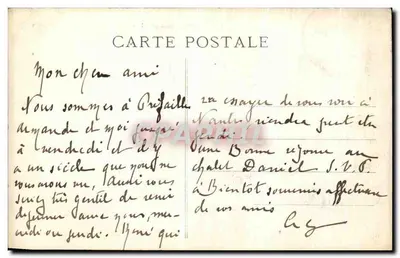 CARTE POSTALE
Mon cher ami
Nous sommes à Préfaille
demande et moi jusqu'
à vendredi et il y
a un siècle que nous ne
vous avons vu, aussi vous
seriez très gentil de venir
déjeuner avec nous, mer-
credi ou jeudi. René qui
essayer de vous voir à
Nantes viendra peut etre
une Bonne réponse au
chalet Daniel S.V.P.
à Bientot souvenirs affectueux
de vos amis